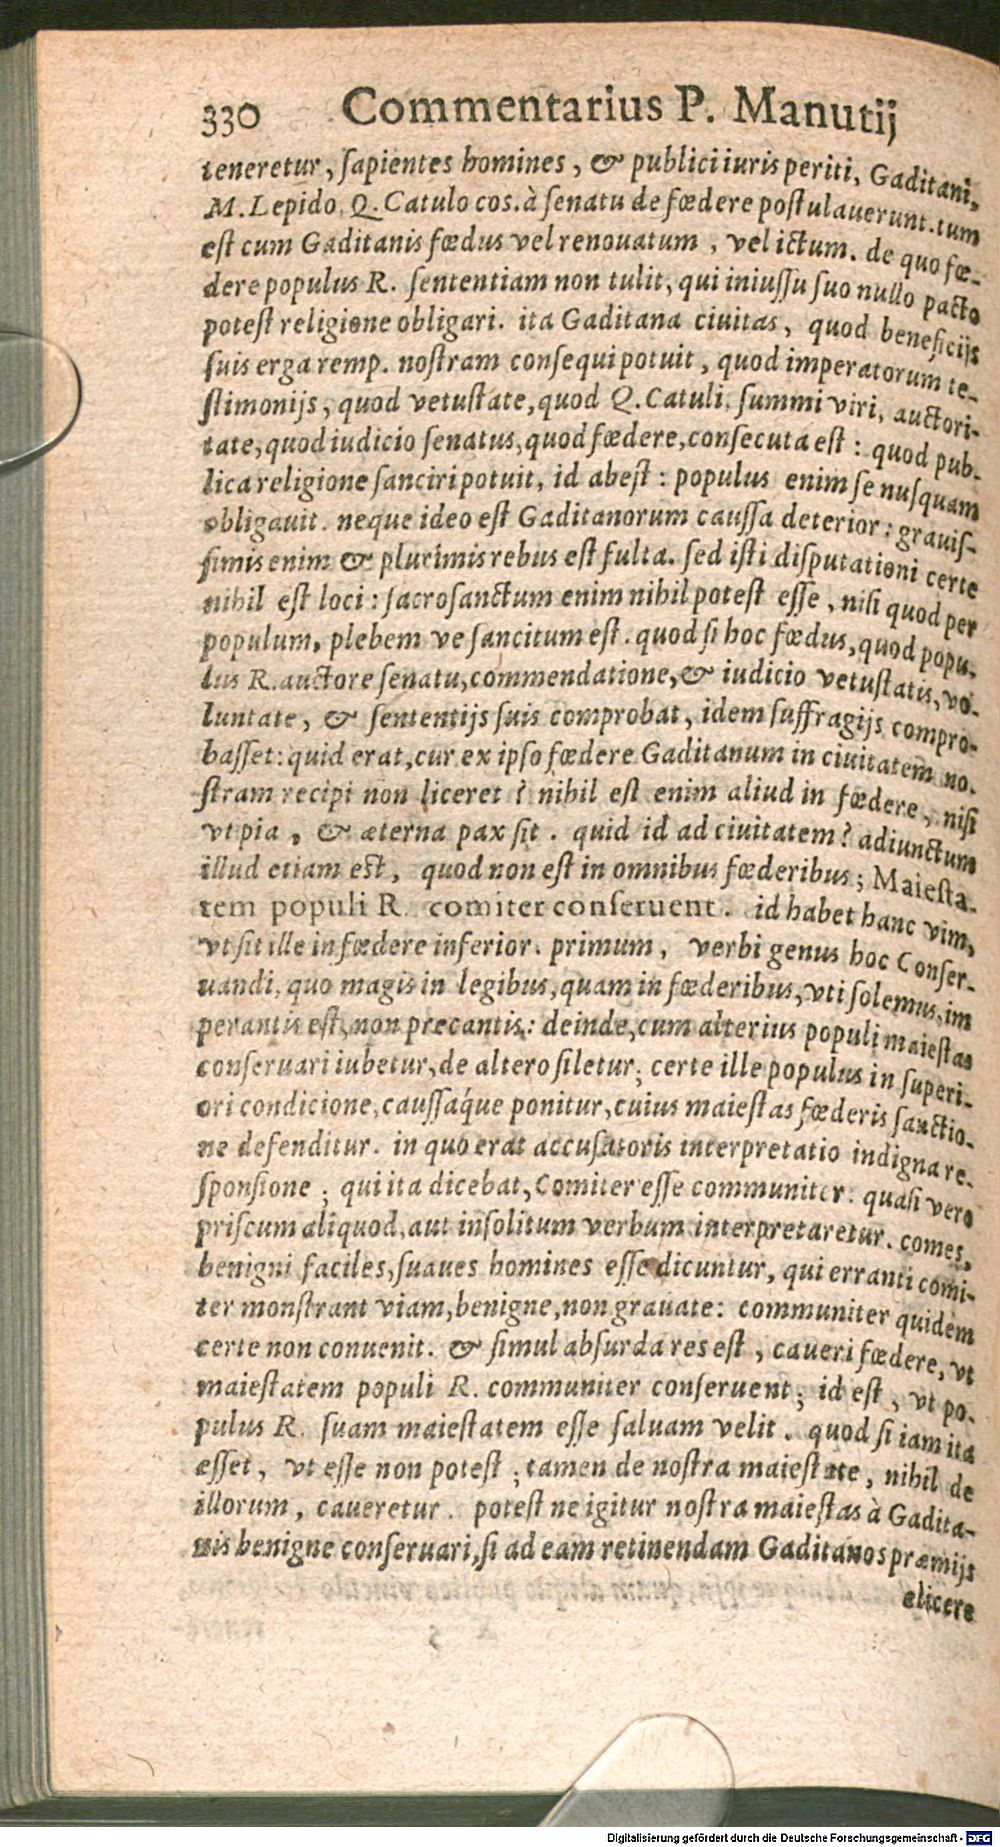 330 Commentarius P. Manutij
teneretur, sapientes homines, & publici iuris periti, Gaditani,
M. Lepido, Q. Catulo cos. à senatu de fœdere postulauerunt. tum
est cum Gaditanis fœdus vel renouatum, vel ictum. de quo fœ-
dere populus R. sententiam non tulit, qui iniussu suo nullo pacto
potest religione obligari. ita Gaditana ciuitas, quod beneficijs
suis erga remp. nostram consequi potuit, quod imperatorum te-
stimonijs, quod vetustate, quod Q. Catuli, summi viri, auctori-
tate, quod iudicio senatus, quod fœdere, consecuta est: quod pub-
lica religione sanciri potuit, id abest: populus enim se nusquam
obligauit. neque ideo est Gaditanorum caussa deterior: grauis-
simis enim & plurimis rebus est fulta. sed isti disputationi certe
nihil est loci: sacrosanctum enim nihil potest esse, nisi quod per
populum, plebem ve sancitum est. quod si hoc fœdus, quod popu-
lus R. auctore senatu, commendatione, & iudicio vetustatis, vo-
luntate, & sententijs suis comprobat, idem suffragijs compro-
basset: quid erat, cur ex ipso fœdere Gaditanum in ciuitatem no-
stram recipi non liceret? nihil est enim aliud in fœdere, nisi
vt pia, & æterna pax sit. quid id ad ciuitatem? adiunctum
illud etiam est, quod non est in omnibus fœderibus; Maiesta-
tem populi R. comiter conseruent. id habet hanc vim,
vt sit ille in fœdere inferior. primum, verbi genus hoc Conser-
uandi, quo magis in legibus, quam in fœderibus, vti solemus, im
perantis est, non precantis: deinde, cum alterius populi maiestas
conseruari iubetur, de altero siletur; certe ille populus in superi-
ori condicione, caussáque ponitur, cuius maiestas fœderis sanctio-
ne defenditur. in quo erat accusatoris interpretatio indigna re-
sponsione; qui ita dicebat, Comiter esse communiter: quasi vero
priscum aliquod, aut insolitum verbum interpretaretur. comes,
benigni faciles, suaues homines esse dicuntur, qui erranti comi-
ter monstrant viam, benigne, non grauate: communiter quidem
certe non conuenit. & simul absurda res est, caueri fœdere, vt
maiestatem populi R. communiter conseruent; id est, vt po-
pulus R. suam maiestatem esse saluam velit. quod si iam ita
esset, vt esse non potest; tamen de nostra maiestate, nihil de
illorum, caueretur. potest ne igitur nostra maiestas à Gadita-
nis benigne conseruari, si ad eam retinendam Gaditanos præmijs
elicere
Digitalisierung gefördert durch die Deutsche Forschungsgemeinschaft - DFG